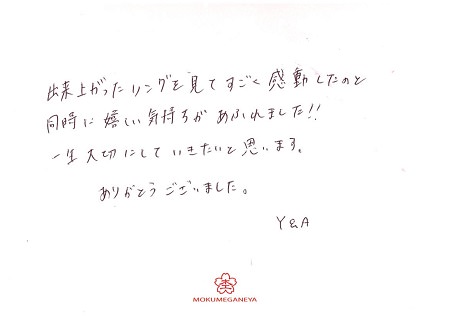 出来上がったリングを見てすごく感動したのと
同時に嬉しい気持ちがあふれました!!
一生大切にしていきたいと思います。
ありがとうございました。
Y&A
杢
MOKUMEGANEYA